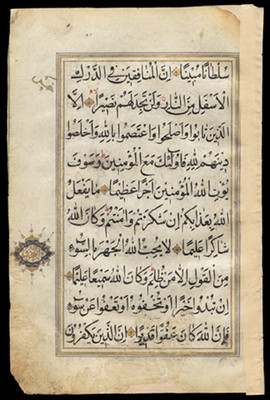 سُلْطَانًا مُبِينًا إِنَّ الْمُنَافِقِينَ فِي الدَّرْكِ
الْأَسْفَلِ مِنَ النَّارِ وَلَنْ تَجِدَ لَهُمْ نَصِيرًا إِلَّا
الَّذِينَ تَابُوا وَأَصْلَحُوا وَاعْتَصَمُوا بِاللَّهِ وَأَخْلَصُوا
دِينَهُمْ لِلَّهِ فَأُولَئِكَ مَعَ الْمُؤْمِنِينَ وَسَوْفَ
يُؤْتِ اللَّهُ الْمُؤْمِنِينَ أَجْرًا عَظِيمًا مَا يَفْعَلُ
اللَّهُ بِعَذَابِكُمْ إِنْ شَكَرْتُمْ وَآمَنْتُمْ وَكَانَ اللَّهُ
شَاكِرًا عَلِيمًا لَا يُحِبُّ اللَّهُ الْجَهْرَ بِالسُّوءِ
مِنَ الْقَوْلِ إِلَّا مَنْ ظُلِمَ وَكَانَ اللَّهُ سَمِيعًا عَلِيمًا
إِنْ تُبْدُوا خَيْرًا أَوْ تُخْفُوهُ أَوْ تَعْفُوا عَنْ سُوءٍ
فَإِنَّ اللَّهَ كَانَ عَفُوًّا قَدِيرًا إِنَّ الَّذِينَ يَكْفُرُونَ